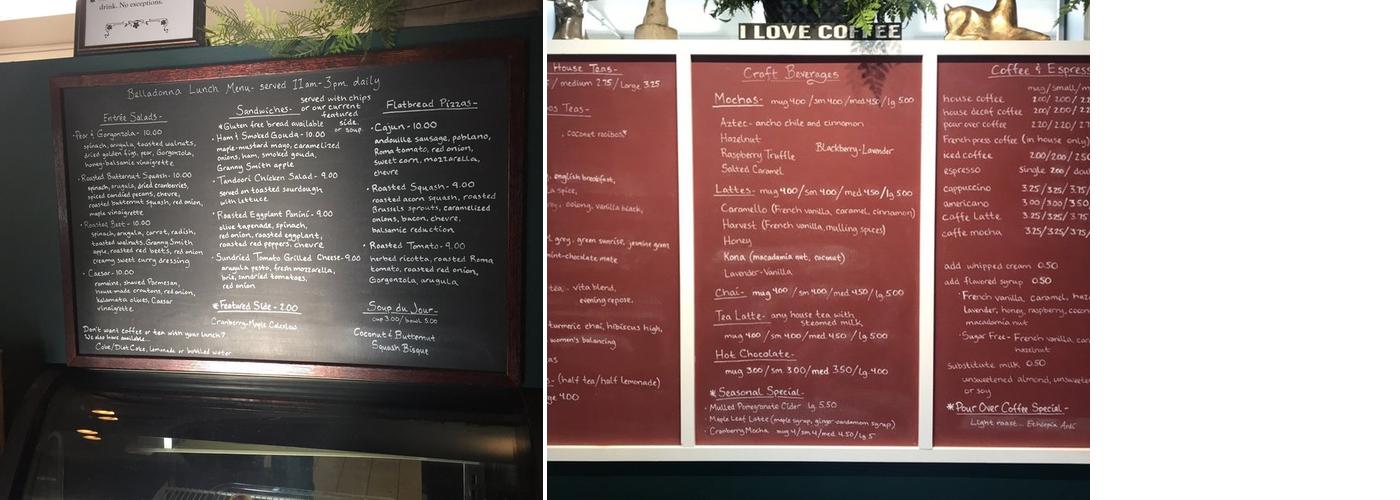 drink. No exceptions.
Belladonna Lunch Menu - served 11am - 3pm. daily
Entrée Salads -
· Pear & Gorgonzola - 10.00
spinach, arugula, toasted walnuts,
dried golden figs, pear, Gorgonzola,
honey-balsamic vinaigrette
· Roasted Butternut Squash - 10.00
spinach, arugula, dried cranberries,
spiced candied pecans, chevre,
roasted butternut squash, red onion,
maple vinaigrette
· Roasted Beet - 10.00
spinach, arugula, carrot, radish,
toasted walnuts, Granny Smith
apple, roasted red beets, red onion
creamy sweet curry dressing
· Caesar - 10.00
romaine, shaved Parmesan,
house made croutons, red onion,
kalamata olives, Caesar
vinaigrette
Don't want coffee or tea with your lunch?
We also have available...
Coke/Diet Coke, lemonade or bottled water
Sandwiches - served with chips
or our current
featured
side.
or soup
*Gluten free bread available
· Ham & Smoked Gouda - 10.00
maple-mustard mayo, caramelized
onions, ham, smoked gouda,
Granny Smith apple
· Tandoori Chicken Salad - 9.00
served on toasted sourdough
with lettuce
· Roasted Eggplant Panini - 9.00
olive tapenade, spinach,
red onion, roasted eggplant,
roasted red peppers, chevre
· Sundried Tomato Grilled Cheese - 9.00
arugula pesto, fresh mozzarella,
brie, sundried tomatoes,
red onion
*Featured Side - 2.00
Cranberry-Maple Coleslaw
Flatbread Pizzas -
· Cajun - 10.00
andouille sausage, poblano,
Roma tomato, red onion,
sweet corn, mozzarella,
chevre
· Roasted Squash - 9.00
roasted acorn squash, roasted
Brussels sprouts, caramelized
onions, bacon, chevre,
balsamic reduction
· Roasted Tomato - 9.00
herbed ricotta, roasted Roma
tomato, roasted red onion,
Gorgonzola, arugula
Soup du Jour -
cup 3.00/bowl 5.00
Coconut & Butternut
Squash Bisque
I LOVE COFFEE
House Teas -
/ medium 2.75 / Large 3.25
Teas -
, coconut rooibos
english breakfast,
spice,
oolong, vanilla black,
grey, green sunrise, jasmine green
mint-chocolate mate
tea, vita blend,
evening repose,
turmeric chai, hibiscus high,
women's balancing
(half tea/half lemonade)
4.00
Craft Beverages
Mochas - mug 4.00 / sm 4.00 / med 4.50 / lg 5.00
Aztec - ancho chile and cinnamon
Hazelnut
Raspberry Truffle
Blackberry-Lavender
Salted Caramel
Lattes - mug 4.00 / sm 4.00 / med 4.50 / lg 5.00
Caramello (French vanilla, caramel, cinnamon)
Harvest (French vanilla, mulling spices)
Honey
Kona (macadamia nut, coconut)
Lavender-Vanilla
Chai - mug 4.00 / sm 4.00 / med 4.50 / lg 5.00
Tea Latte - any house tea with
steamed milk
mug 4.00 / sm 4.00 / med 4.50 / lg 5.00
Hot Chocolate -
mug 3.00 / sm. 3.00 / med 3.50 / Lg. 4.00
*Seasonal Special -
· Mulled Pomegranate Cider lg 5.50
· Maple Leaf Latte (maple syrup, ginger-cardamom syrup)
· Cranberry Mocha mug 4 / sm 4 / med 4.50 / lg 5
Coffee & Espress
mug/small/m
house coffee 2.00/ 2.00/ 2.2
house decaf coffee 2.00/ 2.00/ 2.2
pour over coffee 2.20/ 2.20/ 2.7
French press coffee (in house only)
iced coffee 2.00/2.00/ 2.50
espresso single 2.00/ dou
cappuccino 3.25/3.25/3.75/
americano 3.00/3.00/3.50
caffe Latte 3.25/3.25/3.75
caffe mocha 3.25/3.25/3.7
add whipped cream 0.50
add flavored syrup 0.50
· French vanilla, caramel, haz
lavender, honey, raspberry, cocon
macadamia nut
· Sugar Free - French vanilla, car
hazelnut
substitute milk 0.50
unsweetened almond, unsweete
or soy
*Pour Over Coffee Special -
Light roast... Ethiopia